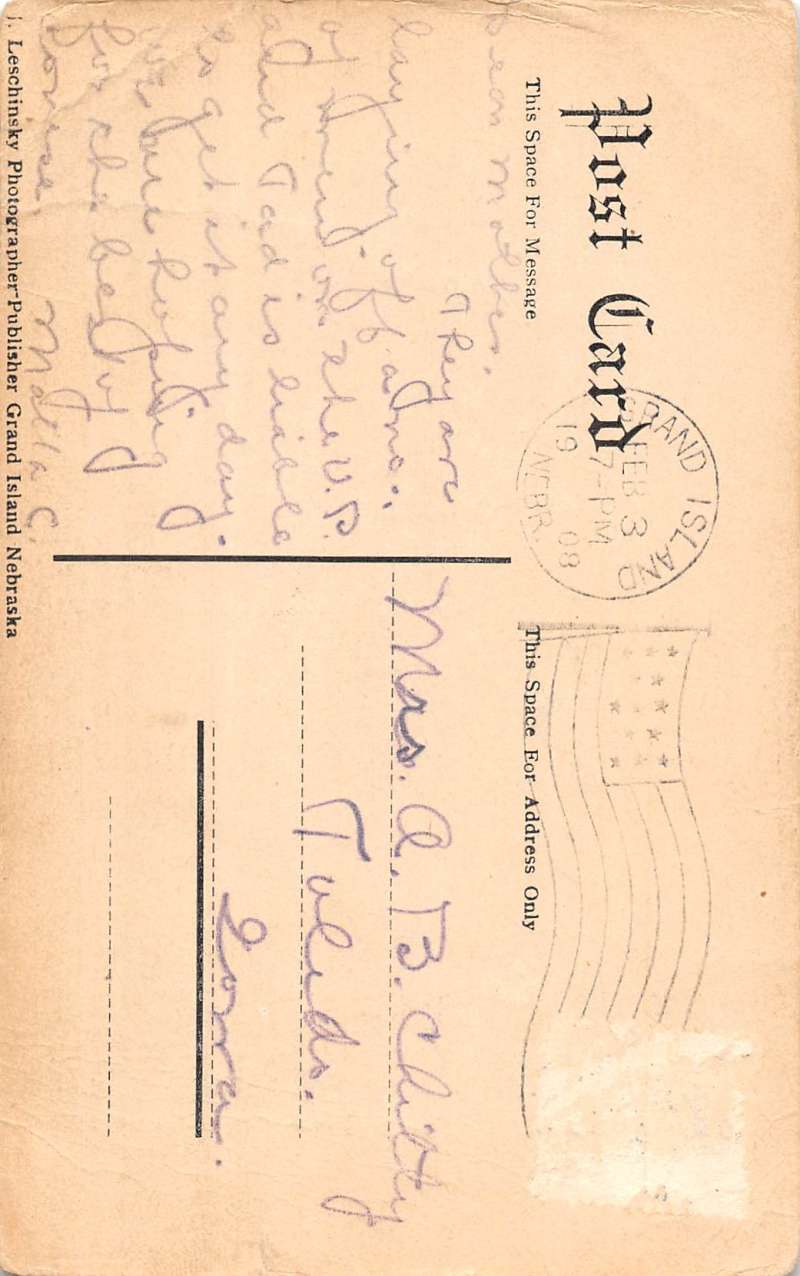 Post Card
This Space For Message
This Space For Address Only
GRAND ISLAND
FEB 3
7-PM
1908
NEBR.
Dear Mother.
They are
laying off a no.
of men on the U.P.
and Tad is liable
to get it any day.
we are hoping
for the best of
course.
Matta C.
Mrs. A. B. Chitty
Toledo.
Iowa.
J. Leschinsky Photographer-Publisher Grand Island Nebraska